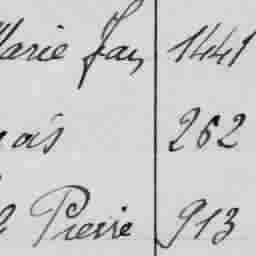 Marie Jan 1441
çois 262
Pierre 913